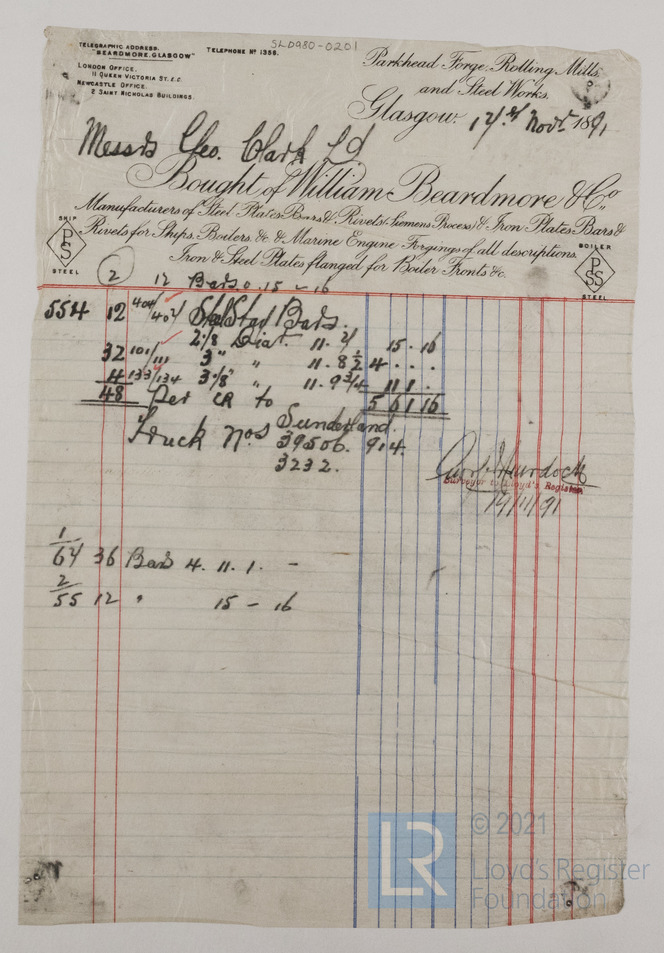 SLD980-0201
TELEGRAPHIC ADDRESS.
"BEARDMORE, GLASGOW"
TELEPHONE Nº 1356.
LONDON OFFICE.
11 QUEEN VICTORIA ST. E.C.
NEWCASTLE OFFICE.
2 SAINT NICHOLAS BUILDINGS.
Parkhead Forge, Rolling Mills,
and Steel Works.
Glasgow. 17th Novr 1891
Messrs Geo. Clark Ld
Bought of William Beardmore & Co.
Manufacturers of Steel Plates Bars & Rivets, (Siemens Process) & Iron Plates Bars &
Rivets for Ships, Boilers, &c. & Marine Engine Forgings of all descriptions.
Iron & Steel Plates flanged for Boiler Fronts &c.
SHIP
PS
STEEL
BOILER
PSS
STEEL
2 12 Bars 0. 15 - 16
554 12 404/407 Stl Stay Bars.
2 5/8 Diar. 11. 15 . 16
32 101/111 3" " 11. 8 1/2 4 . . .
4 133/134 3 1/8" " 11. 9 3/4 11 1 .
48 Per CR to 5 6 1 16
Sunderland.
Truck Nos 39506. 914.
3232.
Murdoch
Surveyor to Lloyd's Register
17/11/91
1/64 36 Bars 4. 11. 1. -
2/55 12 " 15 - 16
© 2021
LR
Lloyd's Register
Foundation